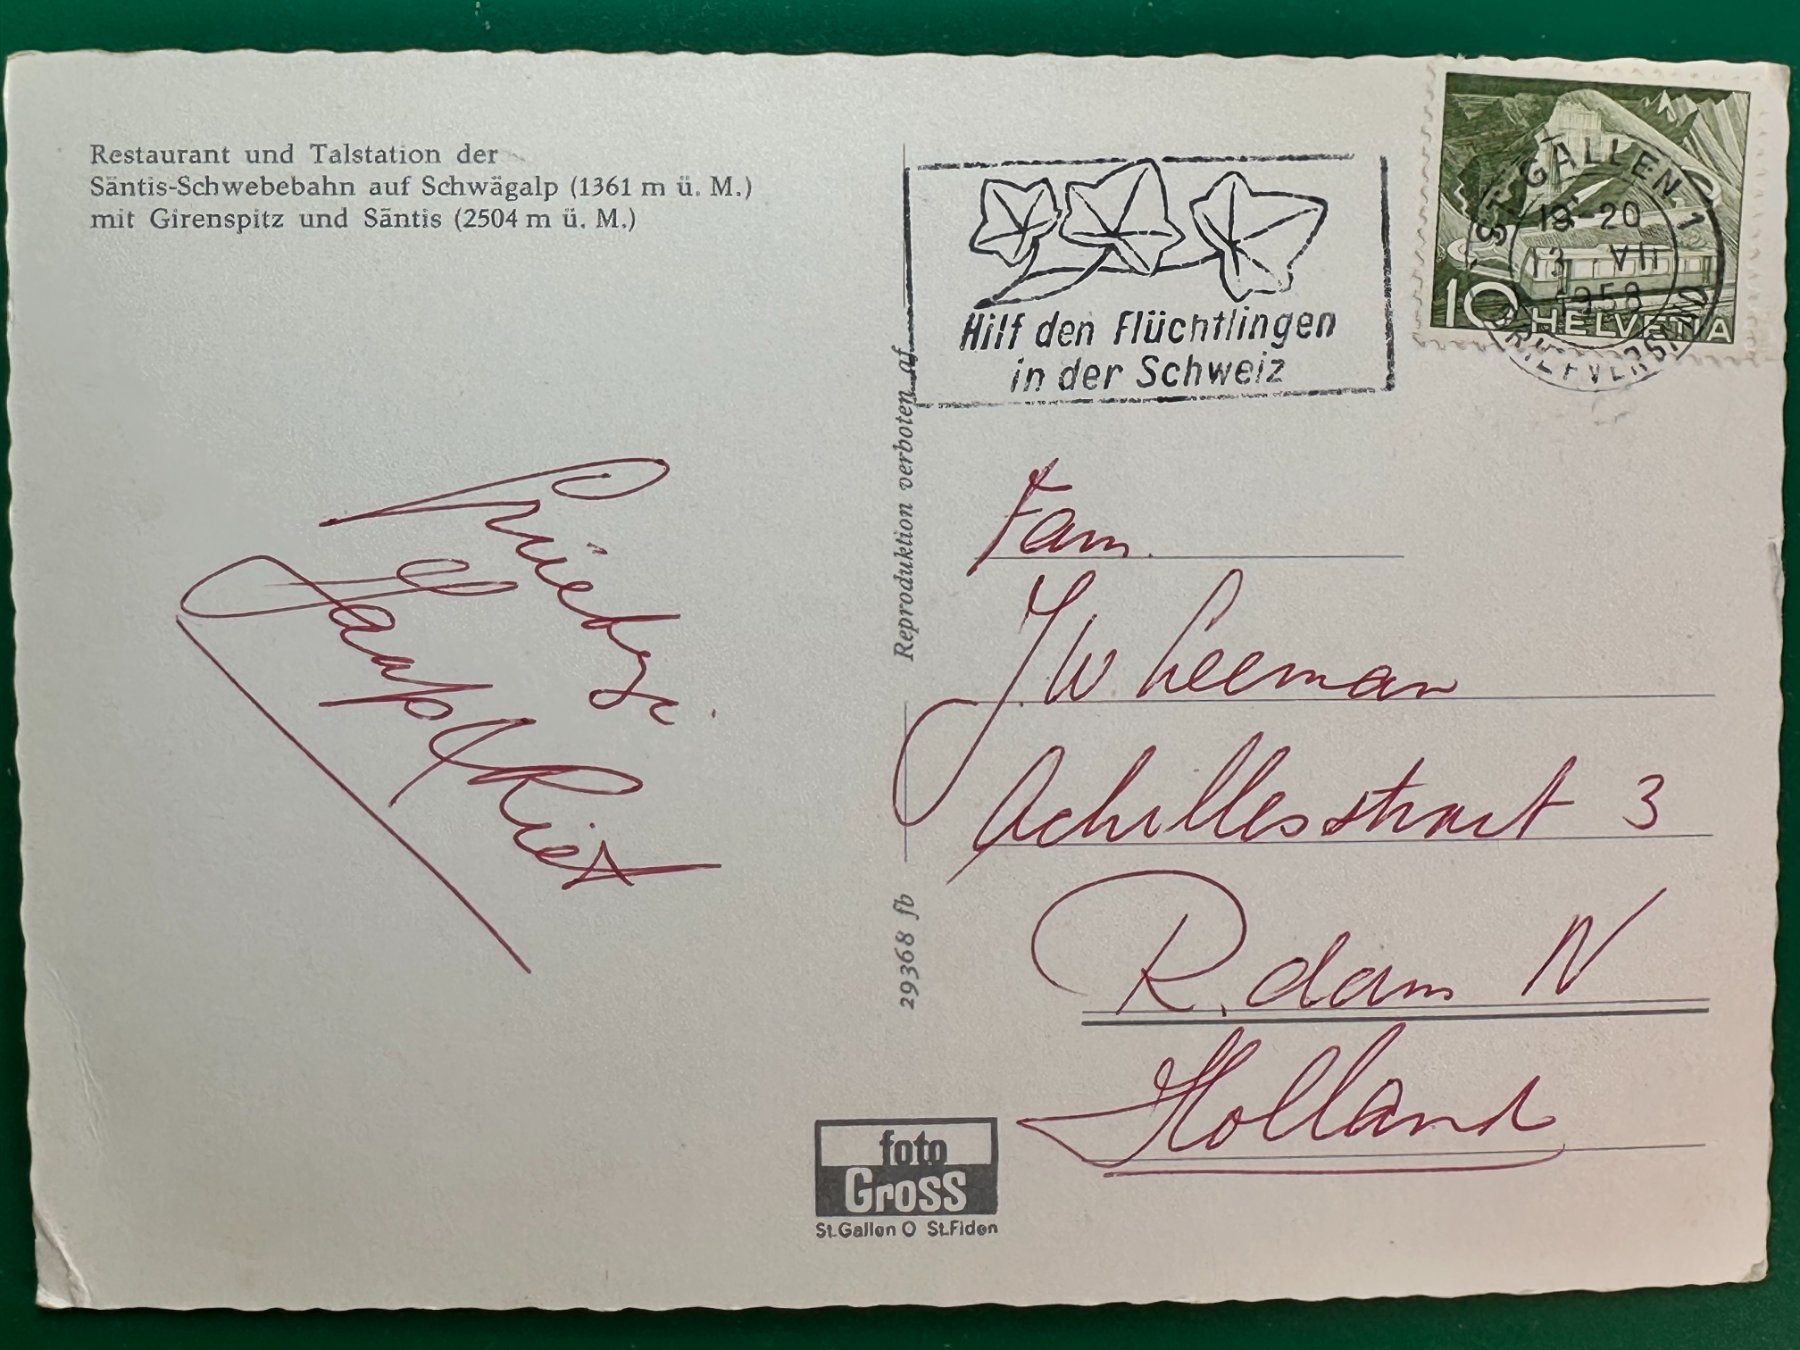 Restaurant und Talstation der
Säntis-Schwebebahn auf Schwägalp (1361 m ü. M.)
mit Girenspitz und Säntis (2504 m ü. M.)
Jaap & Riet
Reproduktion verboten
29368 fb
foto
Gross
St.Gallen O St.Fiden
Hilf den Flüchtlingen
in der Schweiz
ST. GALLEN 1
19-20
13 VII
1958
BRIEFVERSAND
10 HELVETIA
Fam.
J W Leeman
Achillesstraat 3
R.dam N
Holland